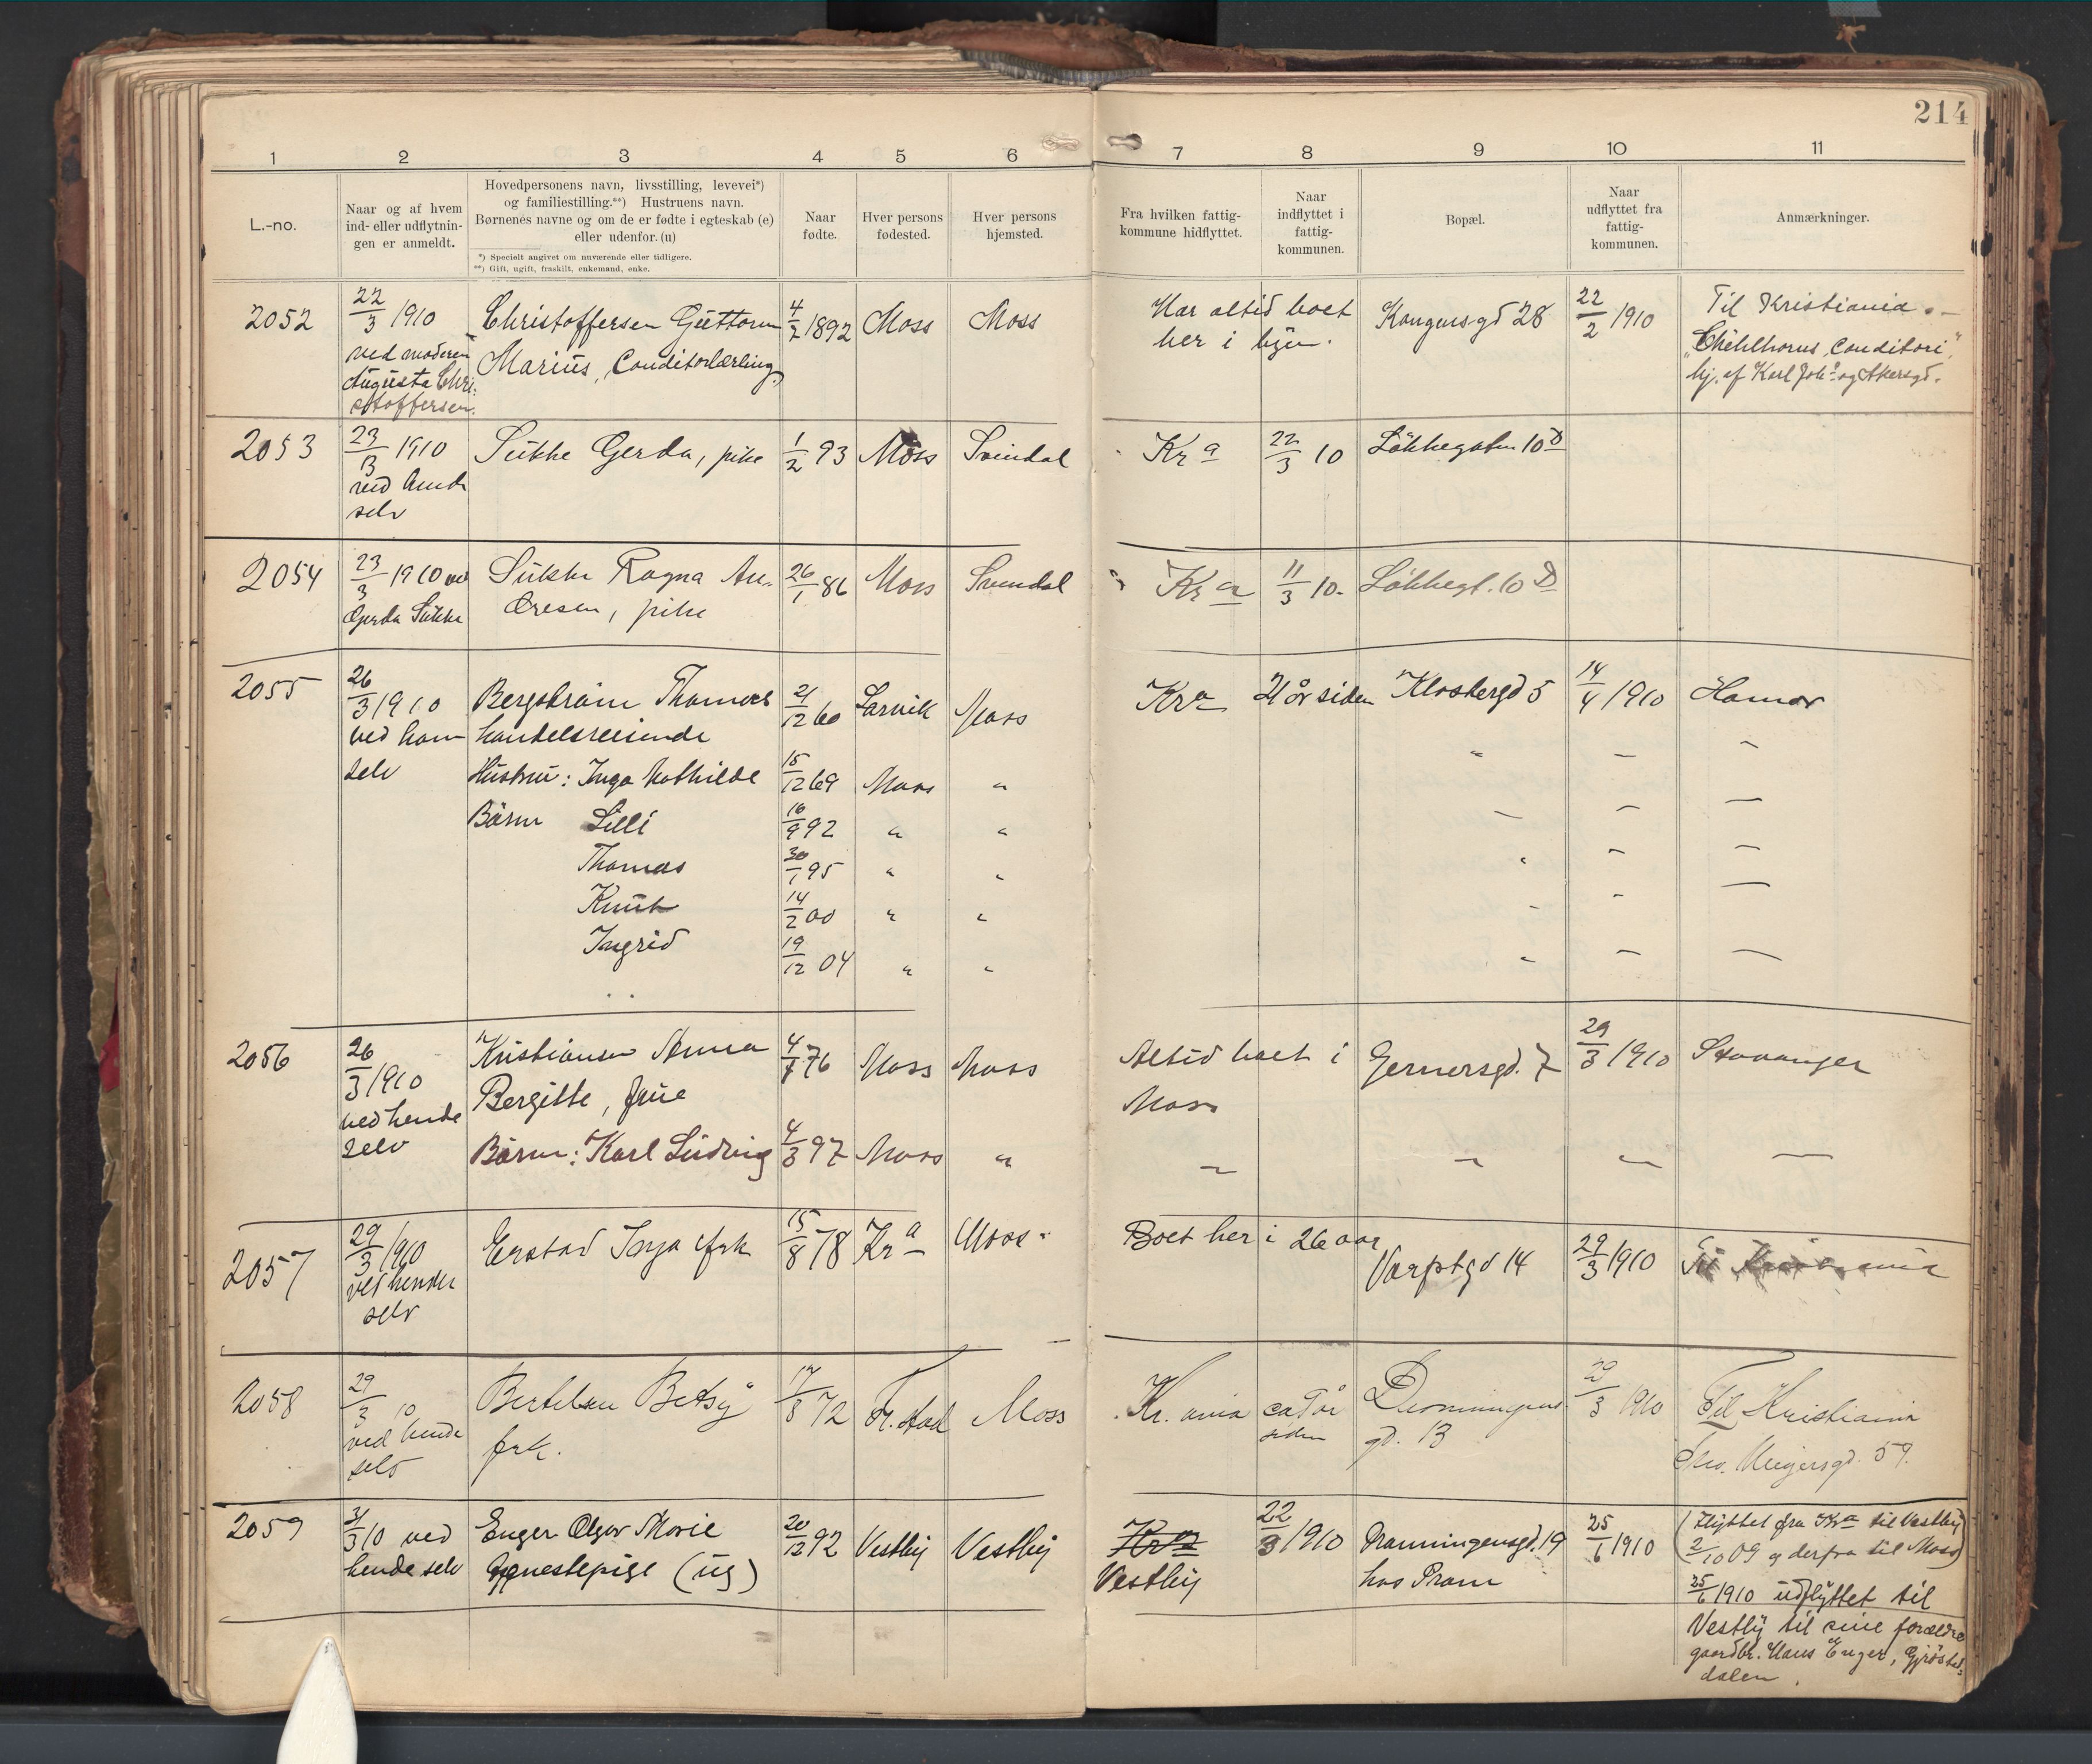 214
1 2 3 4 5 6 7 8 9 10 11
L.-no.
Naar og af hvem
ind- eller udflytnin-
gen er anmeldt.
Hovedpersonens navn, livsstilling, levevei*)
og familiestilling.**) Hustruens navn.
Børnenes navne og om de er fødte i egteskab (e)
eller udenfor. (u)
*) Specielt angivet om nuværende eller tidligere.
**) Gift, ugift, fraskilt, enkemand, enke.
Naar
fødte.
Hver persons
fødested.
Hver persons
hjemsted.
Fra hvilken fattig-
kommune hidflyttet.
Naar
indflyttet i
fattig-
kommunen.
Bopæl.
Naar
udflyttet fra
fattig-
kommunen.
Anmærkninger.
2052
22/3 1910
ved moderen
Augusta Chri-
stoffersen.
Christoffersen Guttorm
Marius, Conditorlærling
4/7 1892
Moss
Moss
Har altid boet
her i byen.
Kongensgd 28
22/2 1910
Til Kristiania.
Conditori
hj. af Karl Joh. og Akersgd.
2053
23/3 1910
ved hende
selv
Sukke Gerda, pike
1/2 93
Moss
Svindal
Kra
22/3 10
Løkkegaten 10 D
2054
23/3 1910 ved
Gerda Sukke
Sukke Ragna An-
dresen, pike
26/1 86
Moss
Svendal
Kra
11/3 10.
Løkkegt. 10 D
2055
26/3 1910
ved ham
selv
Bergstrøm Thomas
handelsreisende
21/12 60
Larvik
Moss
Kra
21 år siden
Klostergd 5
14/4 1910
Hamar
Hustru: Inga Mathilde
15/12 69
Moss
"
" — —
Børn Lilli
16/9 92
" "
— — —
Thomas
30/1 95
" "
" — —
Knut
14/2 00
" "
- - —
Ingrid
19/12 04
" "
" — —
2056
26/3 1910
ved hende
selv
Kristiansen Anna
Bergitte, frue
4/7 76
Moss
Moss
Altid boet i
Moss
Gernersgd. 7
29/3 1910
Stavanger
Børn: Karl Ludvig
4/3 97
Moss
"
— — — —
2057
29/3 1910
ved hende
selv
Erstad Inga frk
15/8 78
Kra
Moss
Boet her i 26 aar
Varftgd 14
29/3 1910
Til Kristiania
2058
29/3 10
ved hende
selv
Bertelsen Betsy
frk.
17/8 72
Fr.stad
Moss
Kr.ania
ca 9 år
siden
Dronningens
gd. 13
29/3 1910
Til Kristiania
Thv. Meyersgd. 59.
2059
31/3 10 ved
hende selv
Enger Olga Marie
tjenestepige (ug)
20/12 92
Vestby
Vestby
Kra
Vestby
22/3 1910
Dronningensgd. 19
hos Pram
25/6 1910
(Flyttet fra Kra til Vestby
2/10 09 og derfra til Moss)
25/6 1910 udflyttet til
Vestby til sine forældre
gaardbr. Hans Enger, Gjøstel-
dalen.